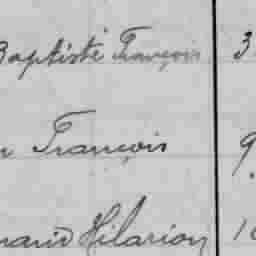 Baptiste François 3
François 9
Hilarion 1